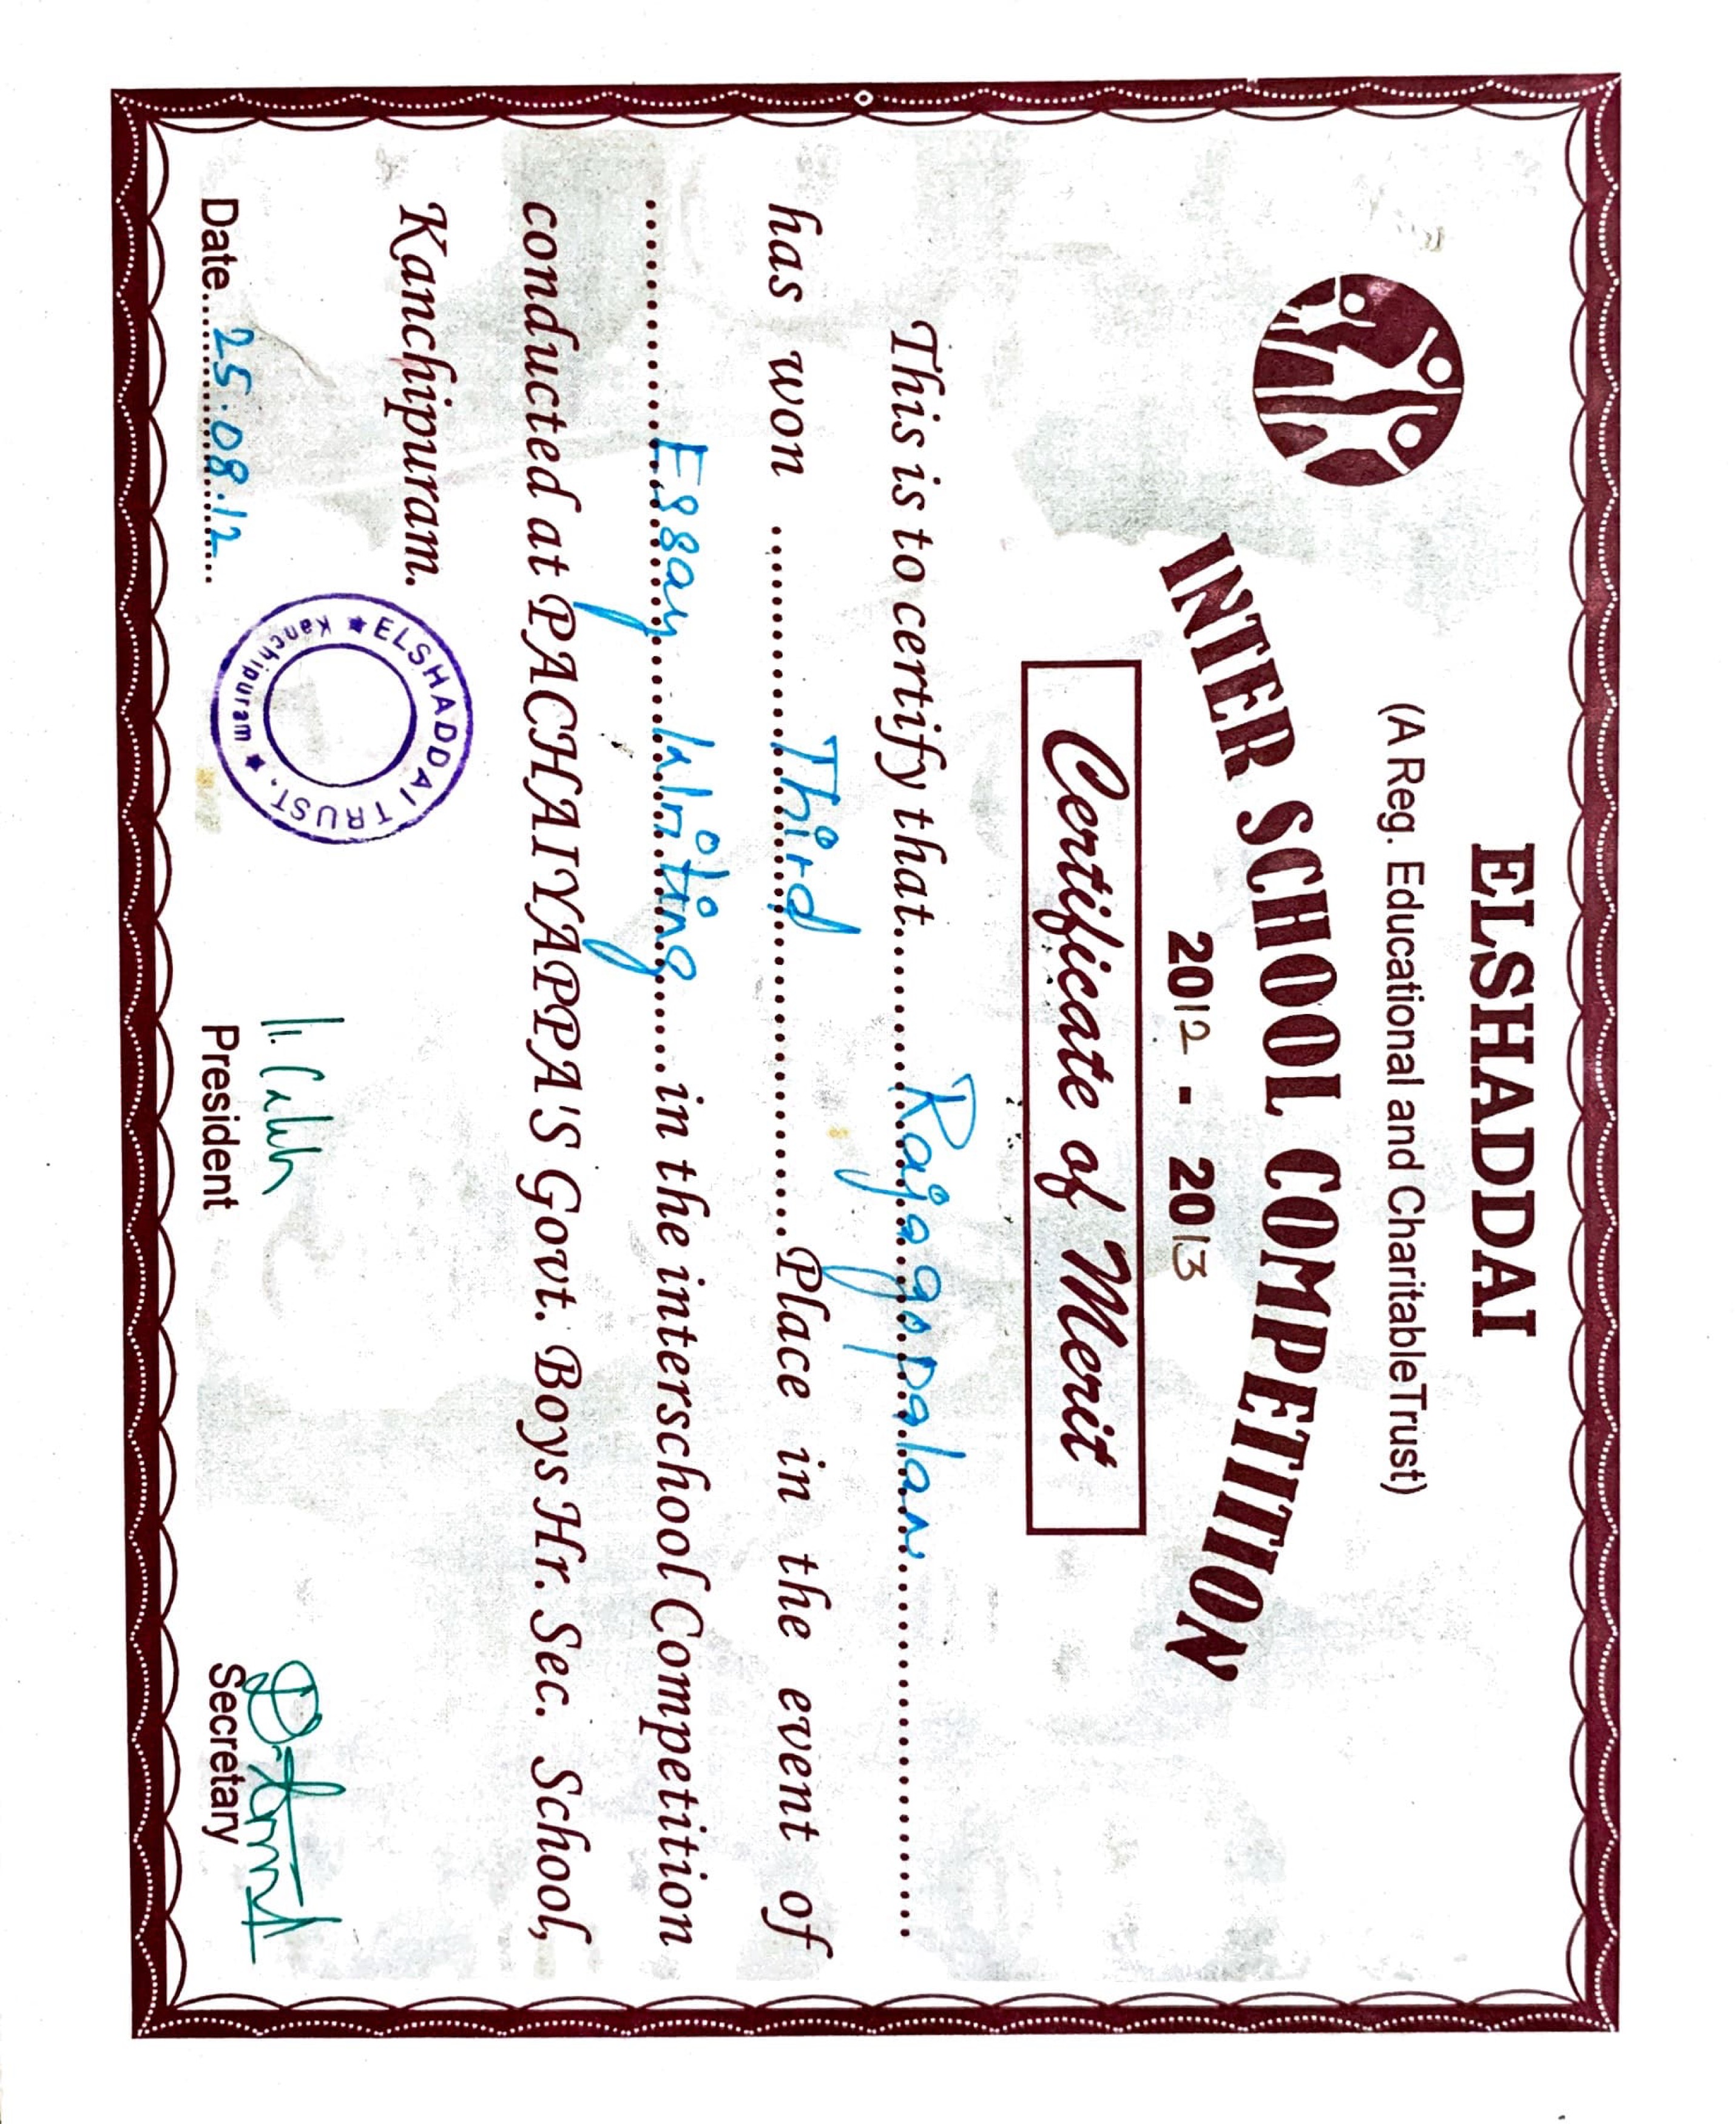 ELSHADDAI
(A Reg. Educational and Charitable Trust)
INTER SCHOOL COMPETITION
2012 - 2013
Certificate of Merit
This is to certify that........Rajagopalan........
has won ............Third............Place in the event of
............Essay Writing......in the interschool Competition
conducted at PACHAIYAPPA'S Govt. Boys Hr. Sec. School,
Kanchipuram.
ELSHADDAI TRUST.
Kanchipuram
Date...25.08.12...
President
Secretary